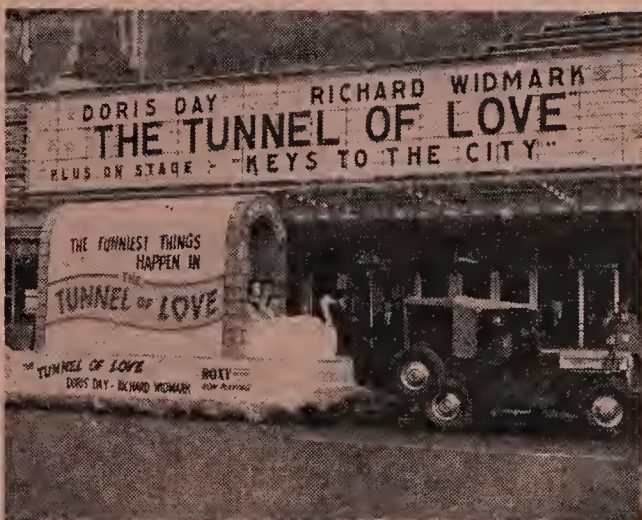 DORIS DAY RICHARD WIDMARK
THE TUNNEL OF LOVE
PLUS ON STAGE - "KEYS TO THE CITY"
THE FUNNIEST THINGS
HAPPEN IN
THE
TUNNEL OF LOVE
THE TUNNEL OF LOVE
DORIS DAY - RICHARD WIDMARK
ROXY
NOW PLAYING